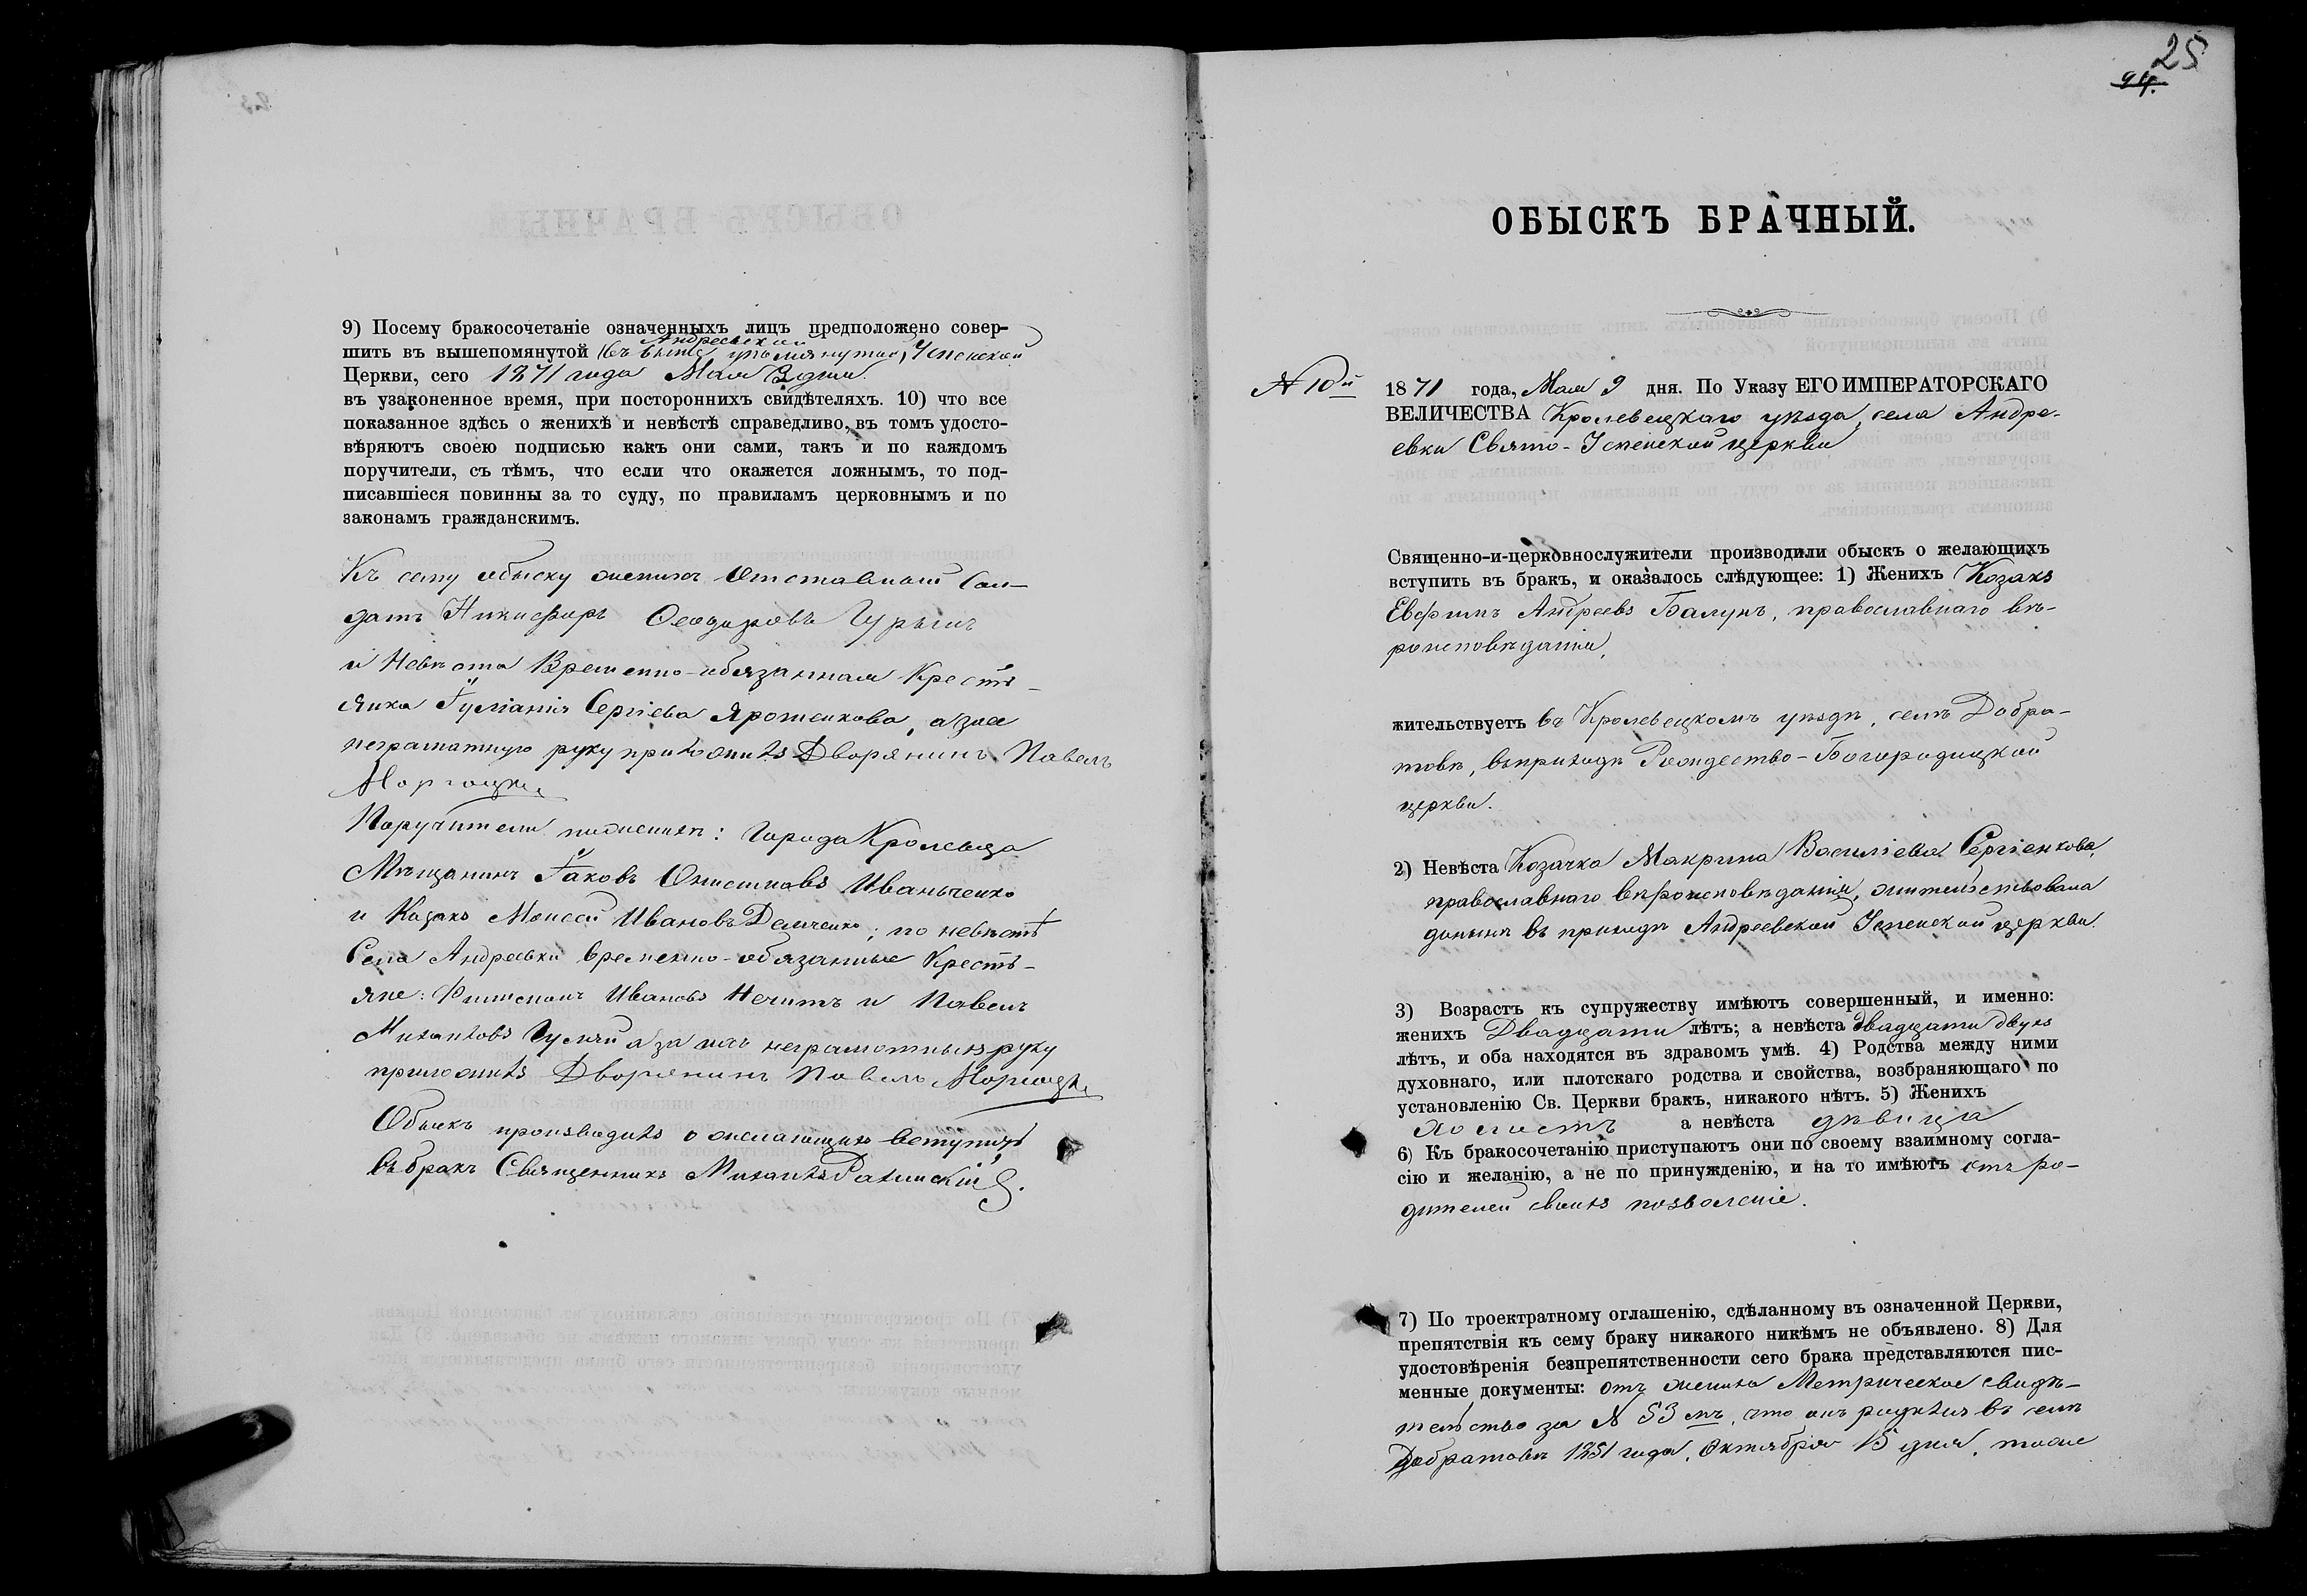 9) Посему бракосочетаніе означенныхъ лицъ предположено совер-
Андреевской
шить въ вышепомянутой въ выше упомянутой, Успенской
Церкви, сего 1871 года Мая дня.
въ узаконенное время, при постороннихъ свидѣтеляхъ. 10) что все
показанное здѣсь о женихѣ и невѣстѣ справедливо, въ томъ удосто-
вѣряютъ своею подписью какъ они сами, такъ и по каждомъ
поручители, съ тѣмъ, что если что окажется ложнымъ, то под-
писавшіеся повинны за то суду, по правиламъ церковнымъ и по
законамъ гражданскимъ.
Къ сему обыску женихъ Отставной Сол-
датъ Никифоръ Ѳеодоровъ Гурьинъ
и Невѣста Временно-обязанная Кресть-
янка Іуліанія Сергіева Ярошенкова, а за нее
неграматную руку приложилъ Дворянинъ Павелъ

Поручители по женихѣ: Города Кролевца
Мѣщанинъ Іаковъ Онисимовъ Иваньченко
и Козакъ Моисей Ивановъ Демченко; по невѣстѣ
Села Андреевки временно-обязанные Кресть-
яне: Филимонъ Ивановъ и Павелъ
Михаиловъ а за нихъ неграмотныхъ руку
приложилъ Дворянинъ Павелъ
Обыскъ производилъ о желающихъ вступить
въ бракъ Священникъ Михаилъ
25
24.
ОБЫСКЪ БРАЧНЫЙ.
№ 10й
1871 года, Мая 9 дня. По Указу ЕГО ИМПЕРАТОРСКАГО
ВЕЛИЧЕСТВА Кролевецкаго уѣзда, села Андре-
евки Свято-Успенской церкви
Священно-и-церковнослужители производили обыскъ о желающихъ
вступить въ бракъ, и оказалось слѣдующее: 1) Женихъ Козакъ
Евфимъ Андреевъ Балунъ, православнаго вѣ-
роисповѣданія,
жительствуетъ въ Кролевецкомъ уѣздѣ, селѣ Добра-
товѣ, въ приходѣ Рождество-Богородицкой
церкви.
2) Невѣста Козачка Макрина Василіева Сергіенкова,
православнаго вѣроисповѣданія, жительствовала
донынѣ въ приходѣ Андреевской Успенской церкви.
3) Возрастъ къ супружеству имѣютъ совершенный, и именно:
женихъ Двадцати лѣтъ; а невѣста двадцати двухъ
лѣтъ, и оба находятся въ здравомъ умѣ. 4) Родства между ними
духовнаго, или плотскаго родства и свойства, возбраняющаго по
установленію Св. Церкви бракъ, никакого нѣтъ. 5) Женихъ
холостъ а невѣста дѣвица
6) Къ бракосочетанію приступаютъ они по своему взаимному согла-
сію и желанію, а не по принужденію, и на то имѣютъ отъ ро-
дителей своихъ позволеніе.
7) По троектратному оглашенію, сдѣланному въ означенной Церкви,
препятствія къ сему браку никакого никѣмъ не объявлено. 8) Для
удостовѣренія безпрепятственности сего брака представляются пис-
менные документы: отъ жениха Метрическое свидѣ-
тельство за № 53мъ, что онъ родился въ селѣ
Добратовѣ 1851 года, Октября 15 дня,